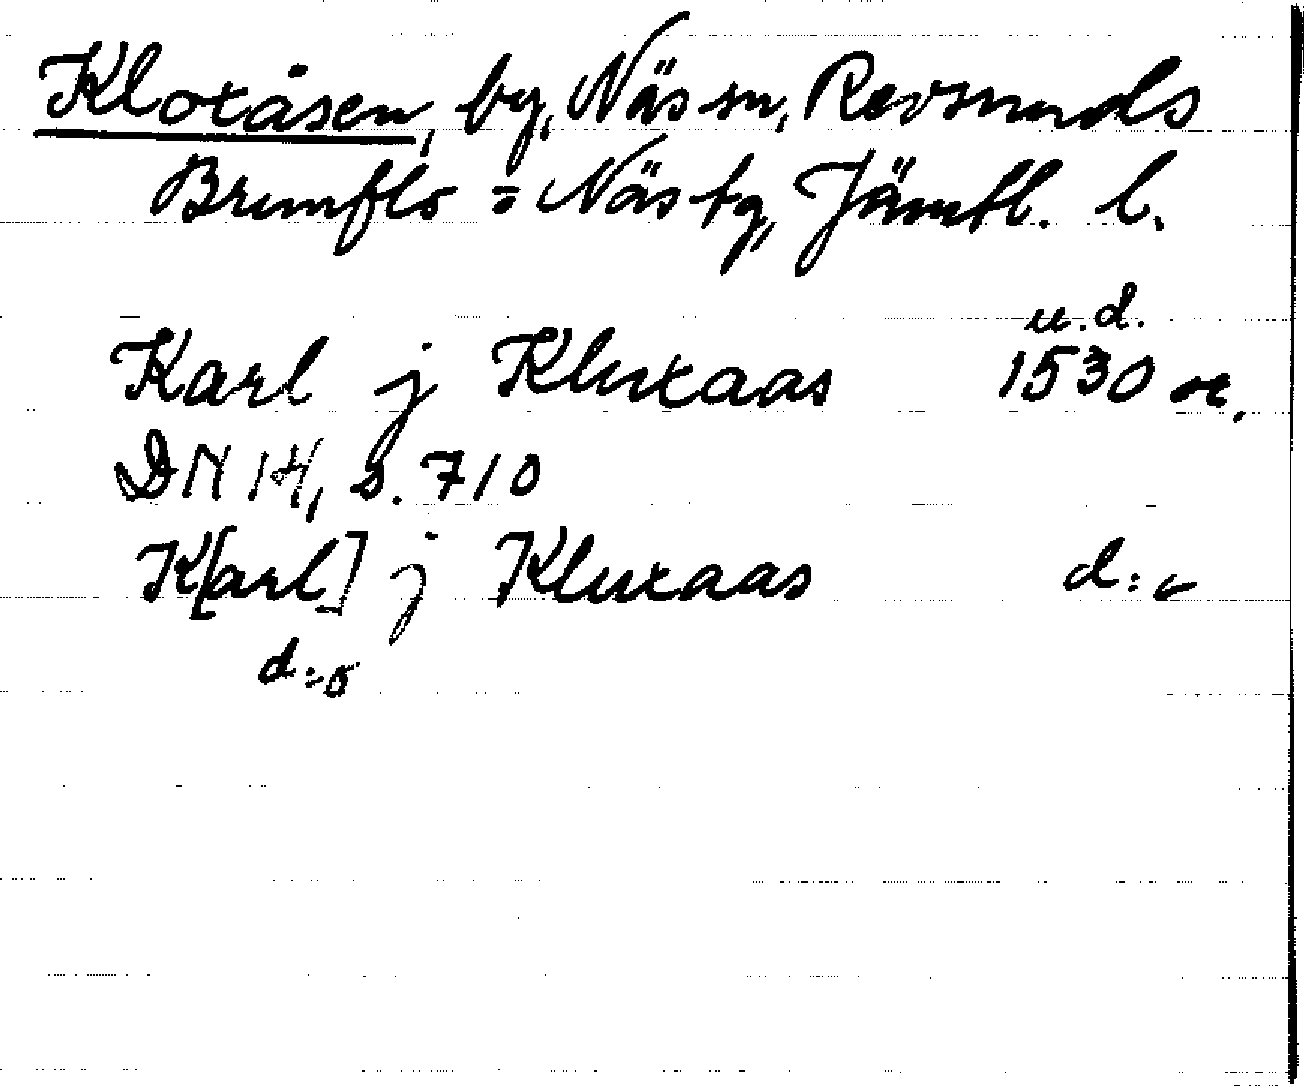 Kloxåsen, by, Näs sn, Revsunds
Brunflo = Näs tg, Jämtl. l.
u.d.
Karl j Kluxaas 1530 or.
DN 14, s. 710
K[arl] j Kluxaas d:o
d:o